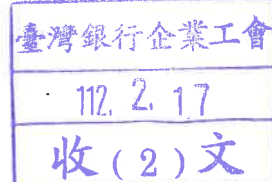 臺灣銀行企業工會
112. 2. 17
收(2)文